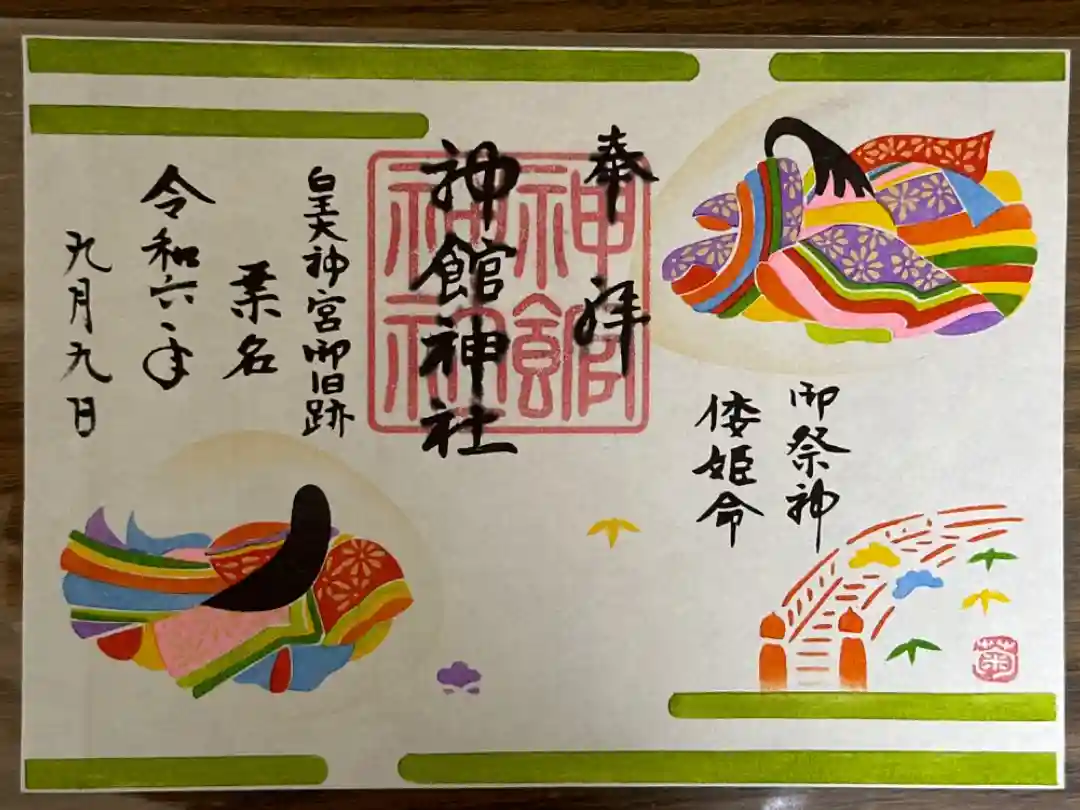 奉拝
御祭神
倭姫命
神館神社
神館
神社
皇大神宮御旧跡
桑名
令和六年
九月九日
菊